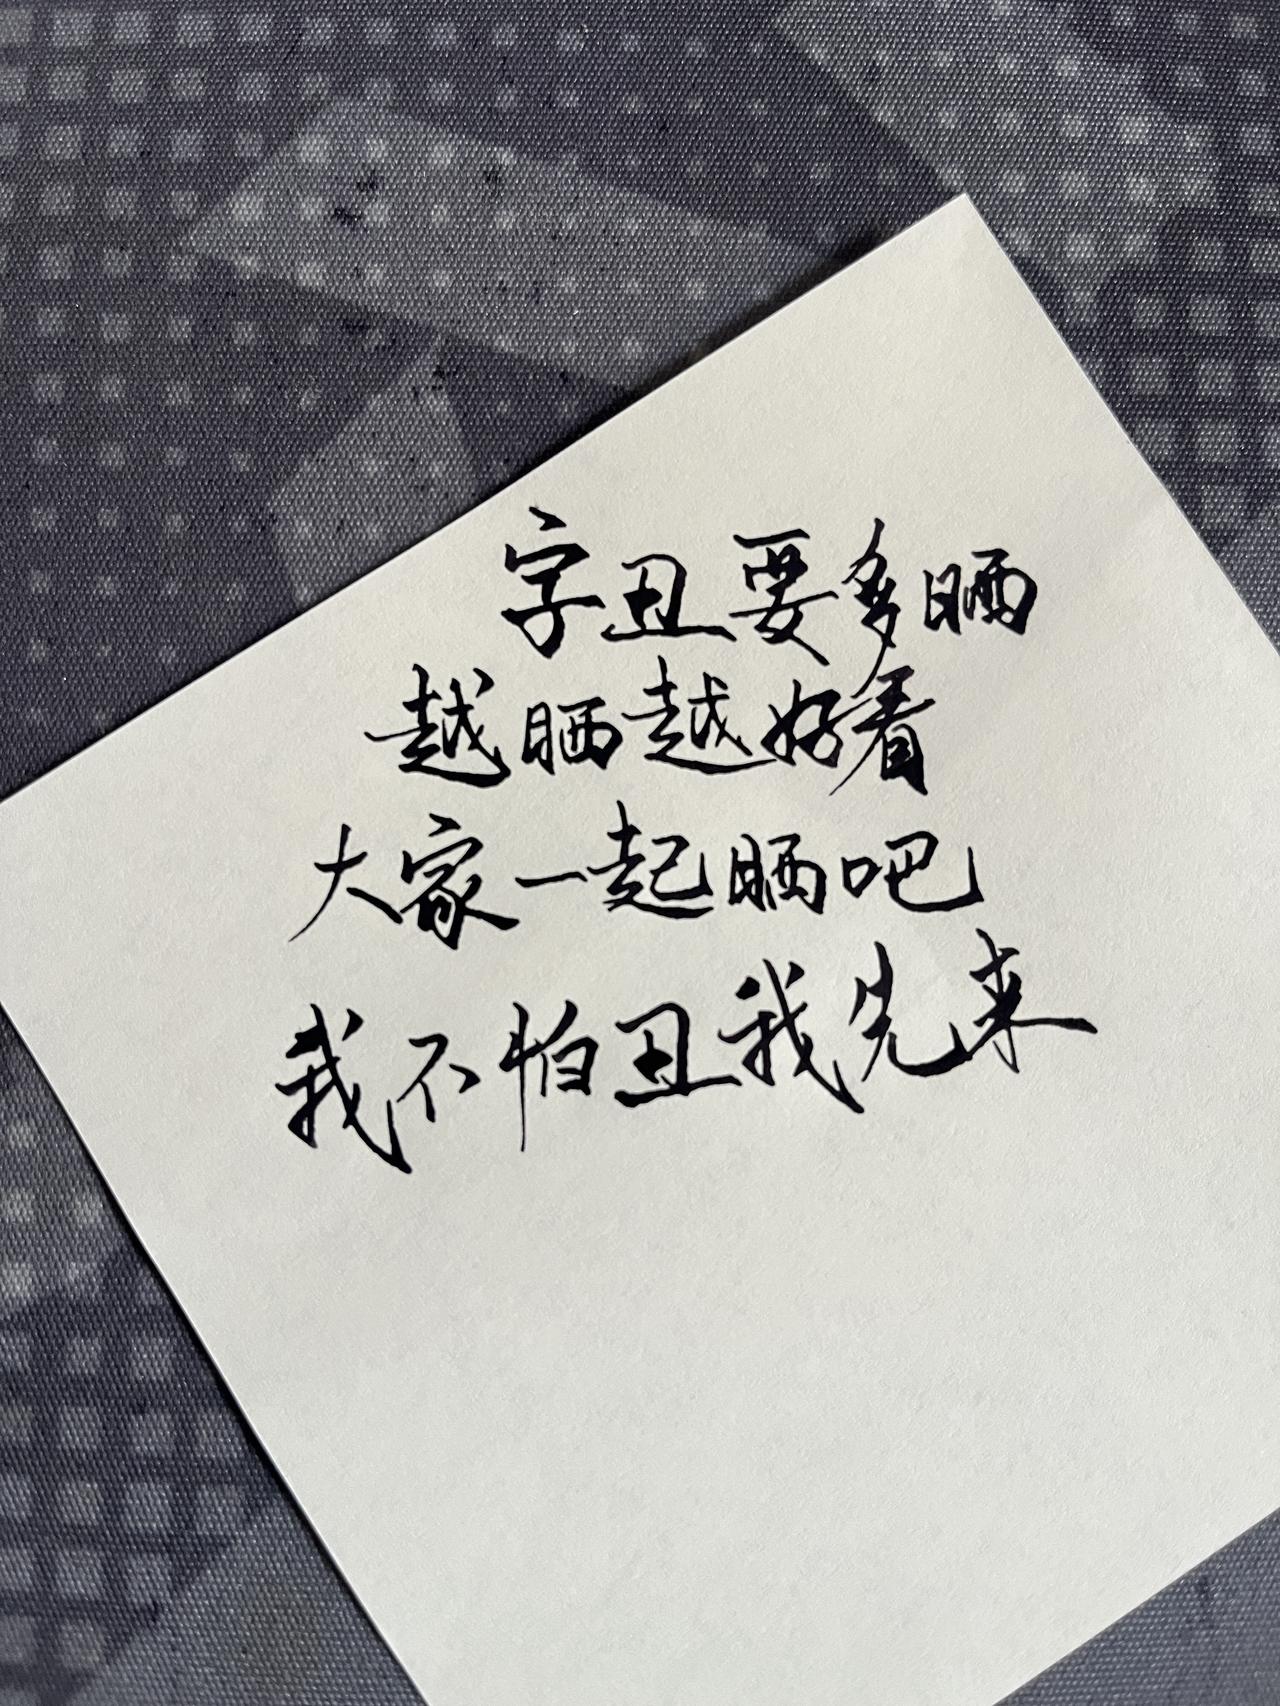 字丑要多晒
越晒越好看
大家一起晒吧
我不怕丑我先来